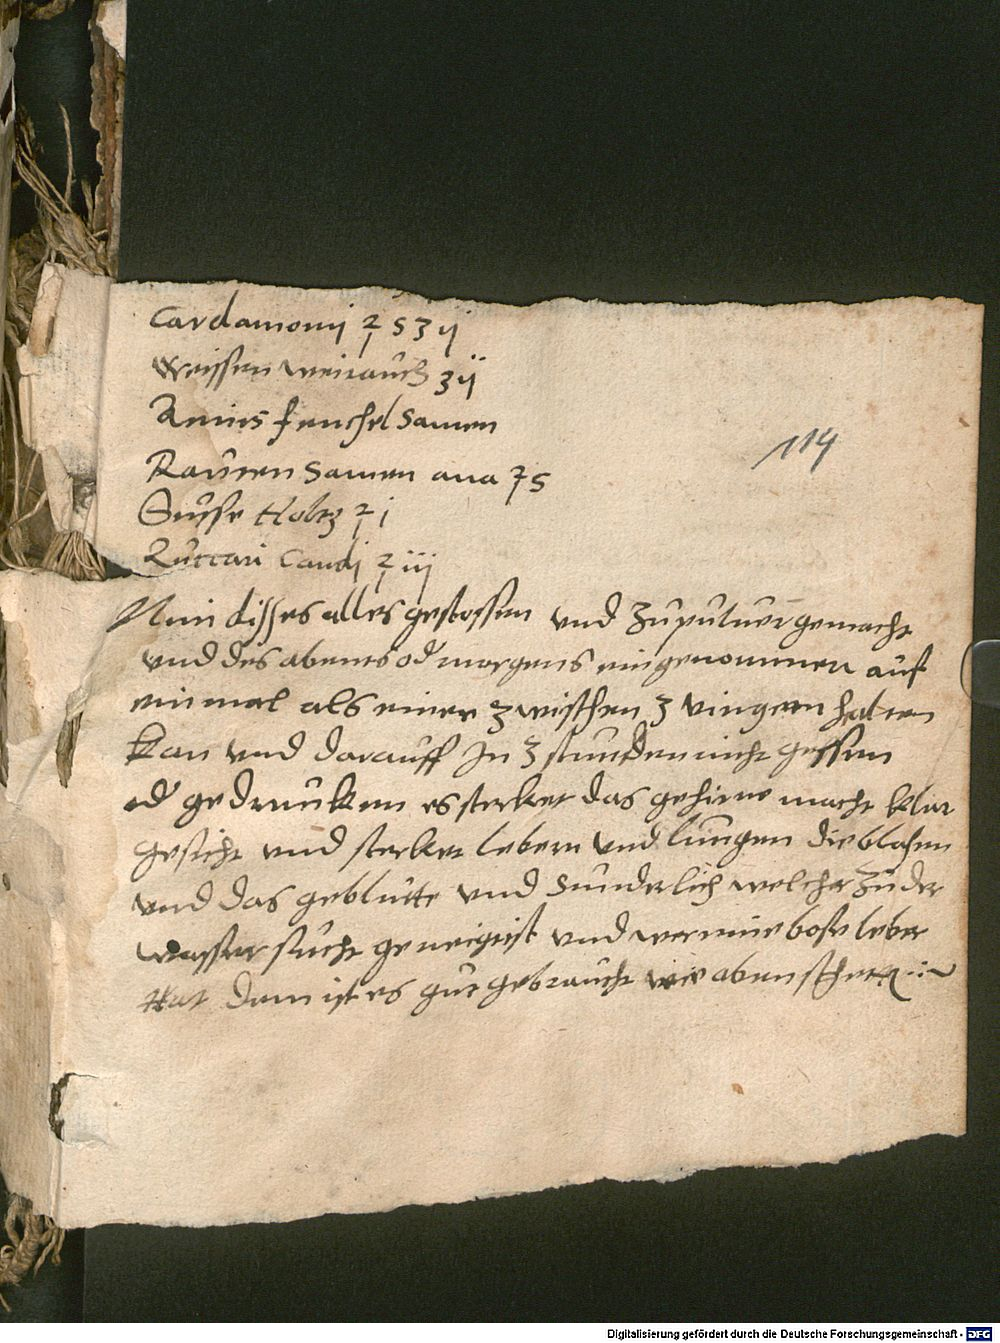 Cardamomij ℥ s ʒ ij
Weissen weirauch ʒ ij
Annis fenchel Samen
Rautten Samen ana ℥ s
Suesse Holtz ℥ i
Zuccari Candj ℥ iij
114
Nim disses alles gestossen vnd zu puluer gemacht
vnd des abents od morgens eingenommen auff
ein mal als einer zwischen 3 vingern halten
kan vnd darauff In 3 stunden nicht gessen
od gedruncken es sterket das gehirne macht klar
gesicht vnd sterket lebern vnd lungen die blasen
vnd das geblutte vnd sunderlich welcher zu der
wasser sucht geneigt ist vnd wer eine bose leber
Hat dem ist es gut gebraucht wie oben steht
Digitalisierung gefördert durch die Deutsche Forschungsgemeinschaft - DFG